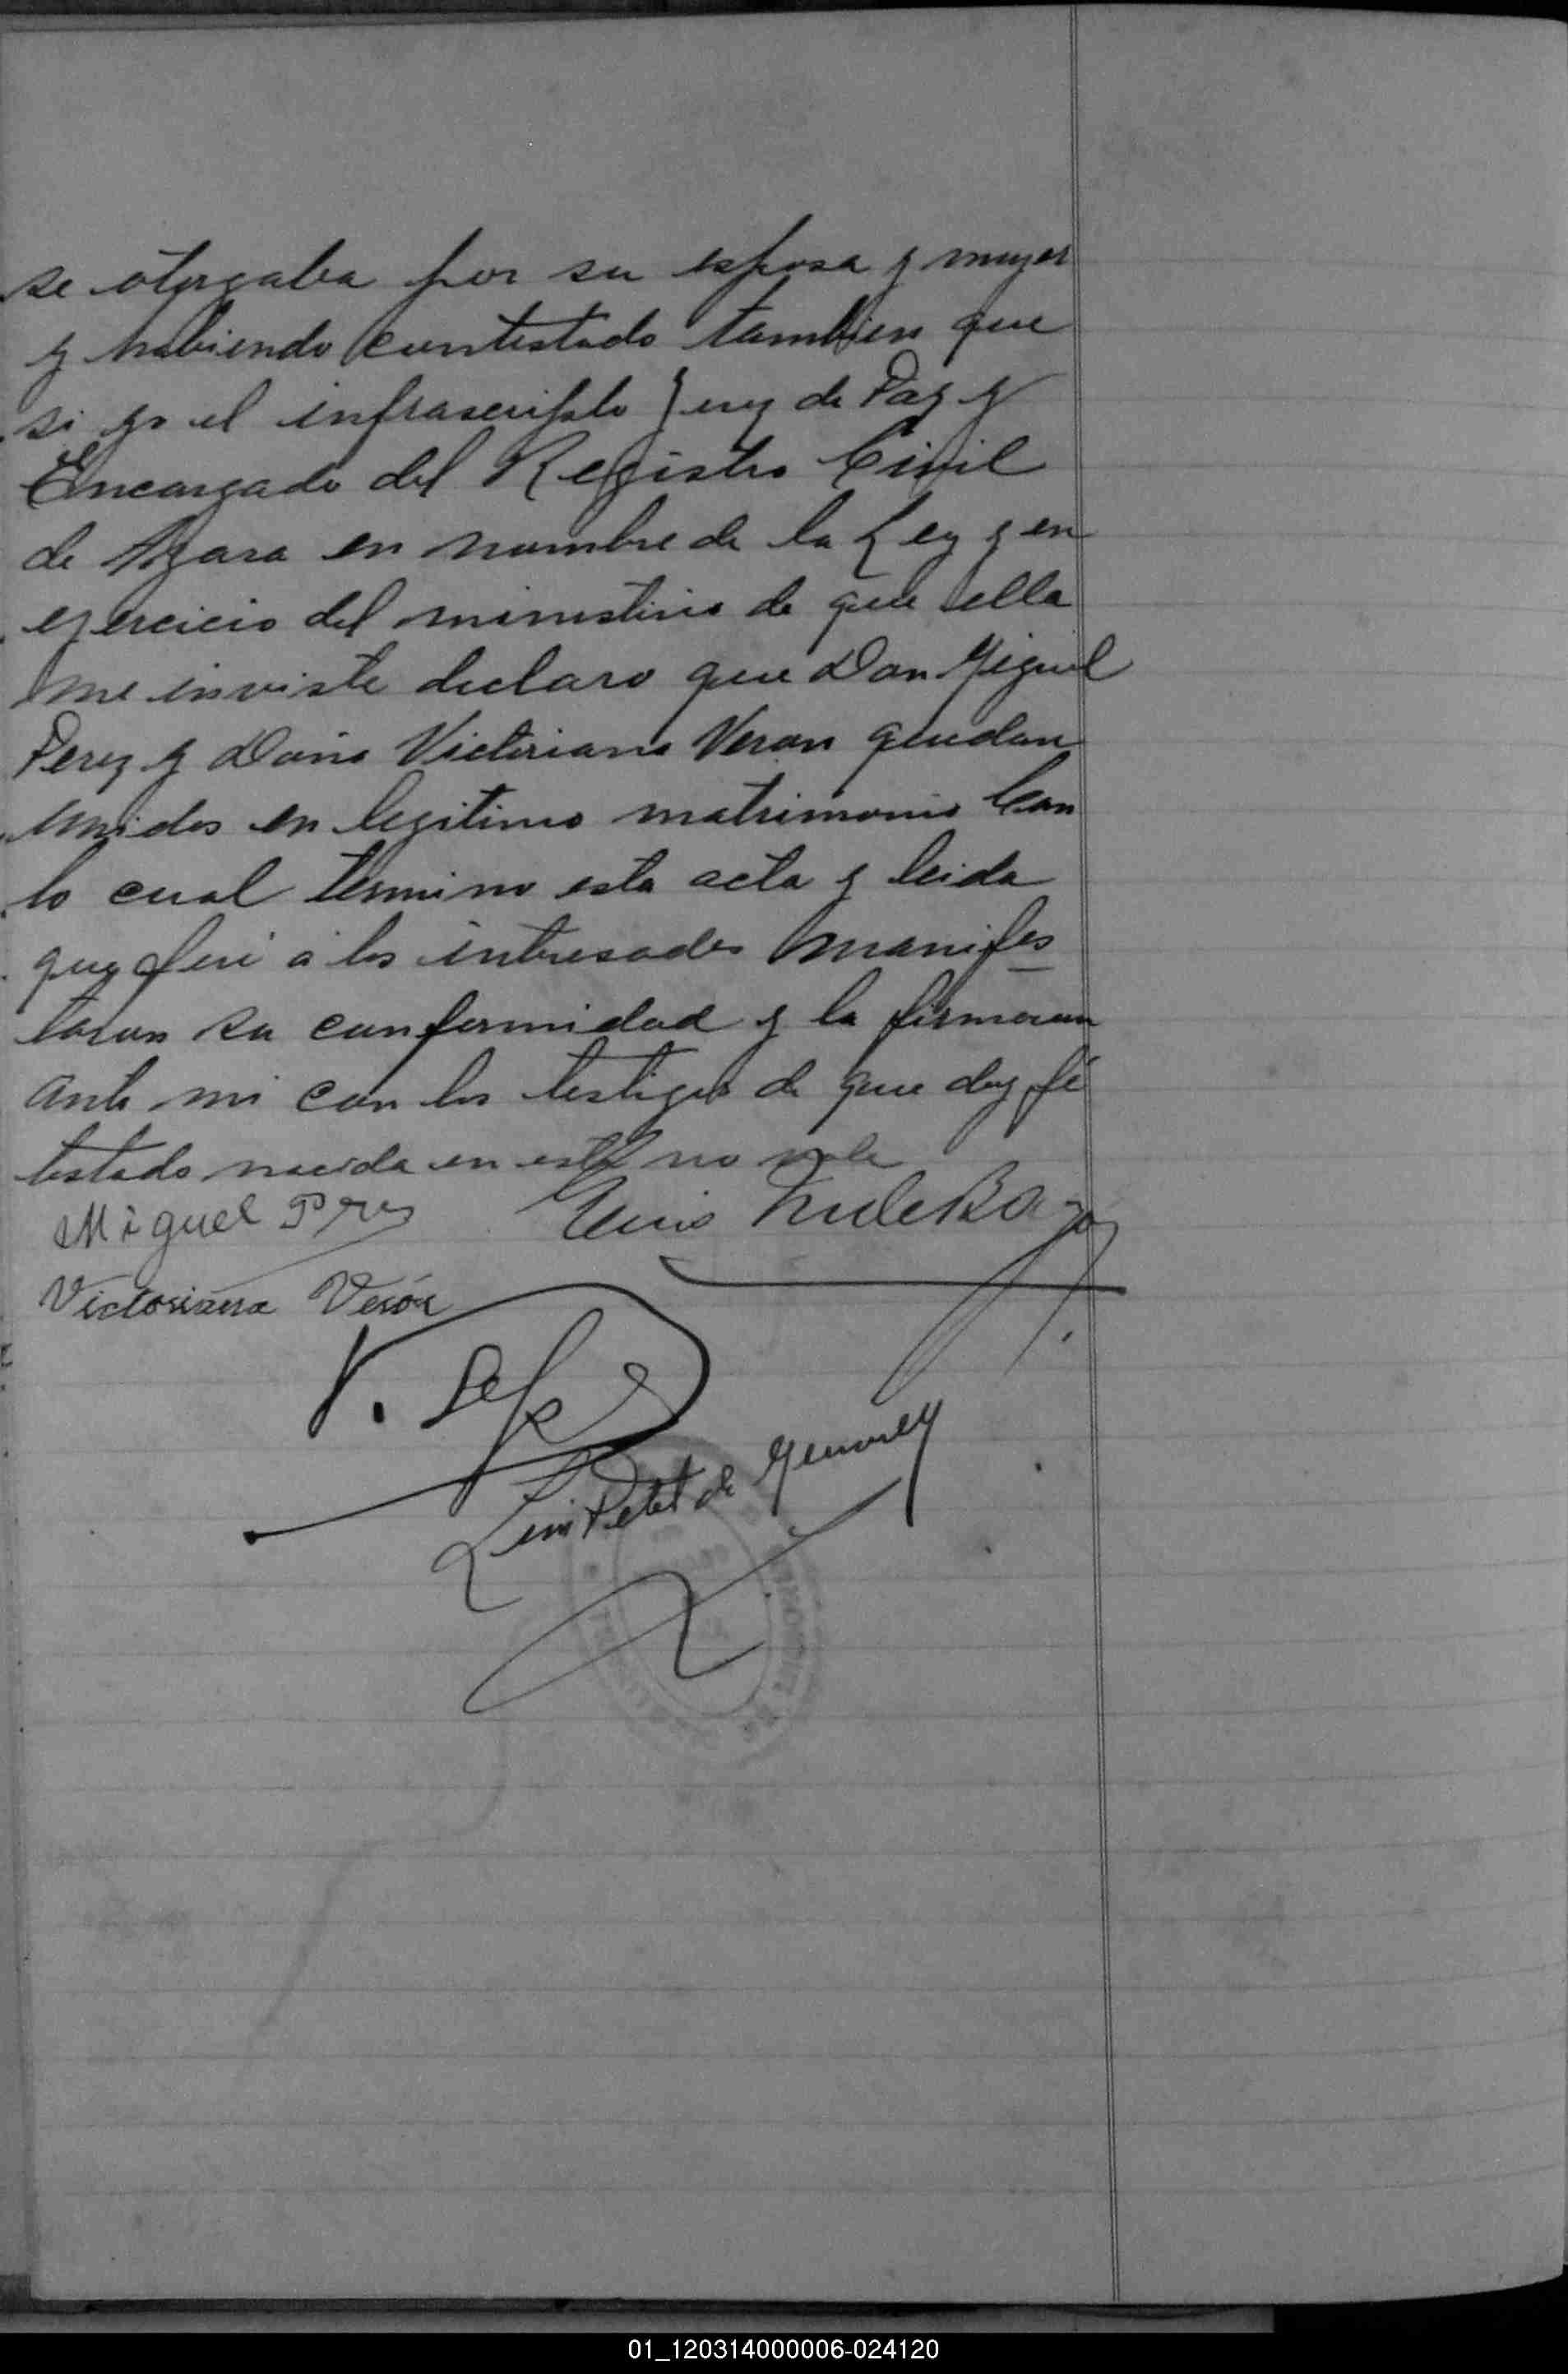 se otorgaba por su esposa y muger
y habiendo contestado tambien que
si yo el infrascripto Juez de Paz y
Encargado del Registro Civil
de Azara en nombre de la Ley y en
ejercicio del ministerio de que ella
me inviste declaro que Don Miguel
Perez y Doña Victoriana Veron quedan
unidos en legitimo matrimonio Con
lo cual termino esta acta y leida
que fué á los intresados manifes
taron su conformidad y la firmaron
ante mi con los testigos de que doy fé
testado nacida en esta no vale
Miguel Prez Luis
Victoriana Verón
V.
Luis Petit de
01_120314000006-024120